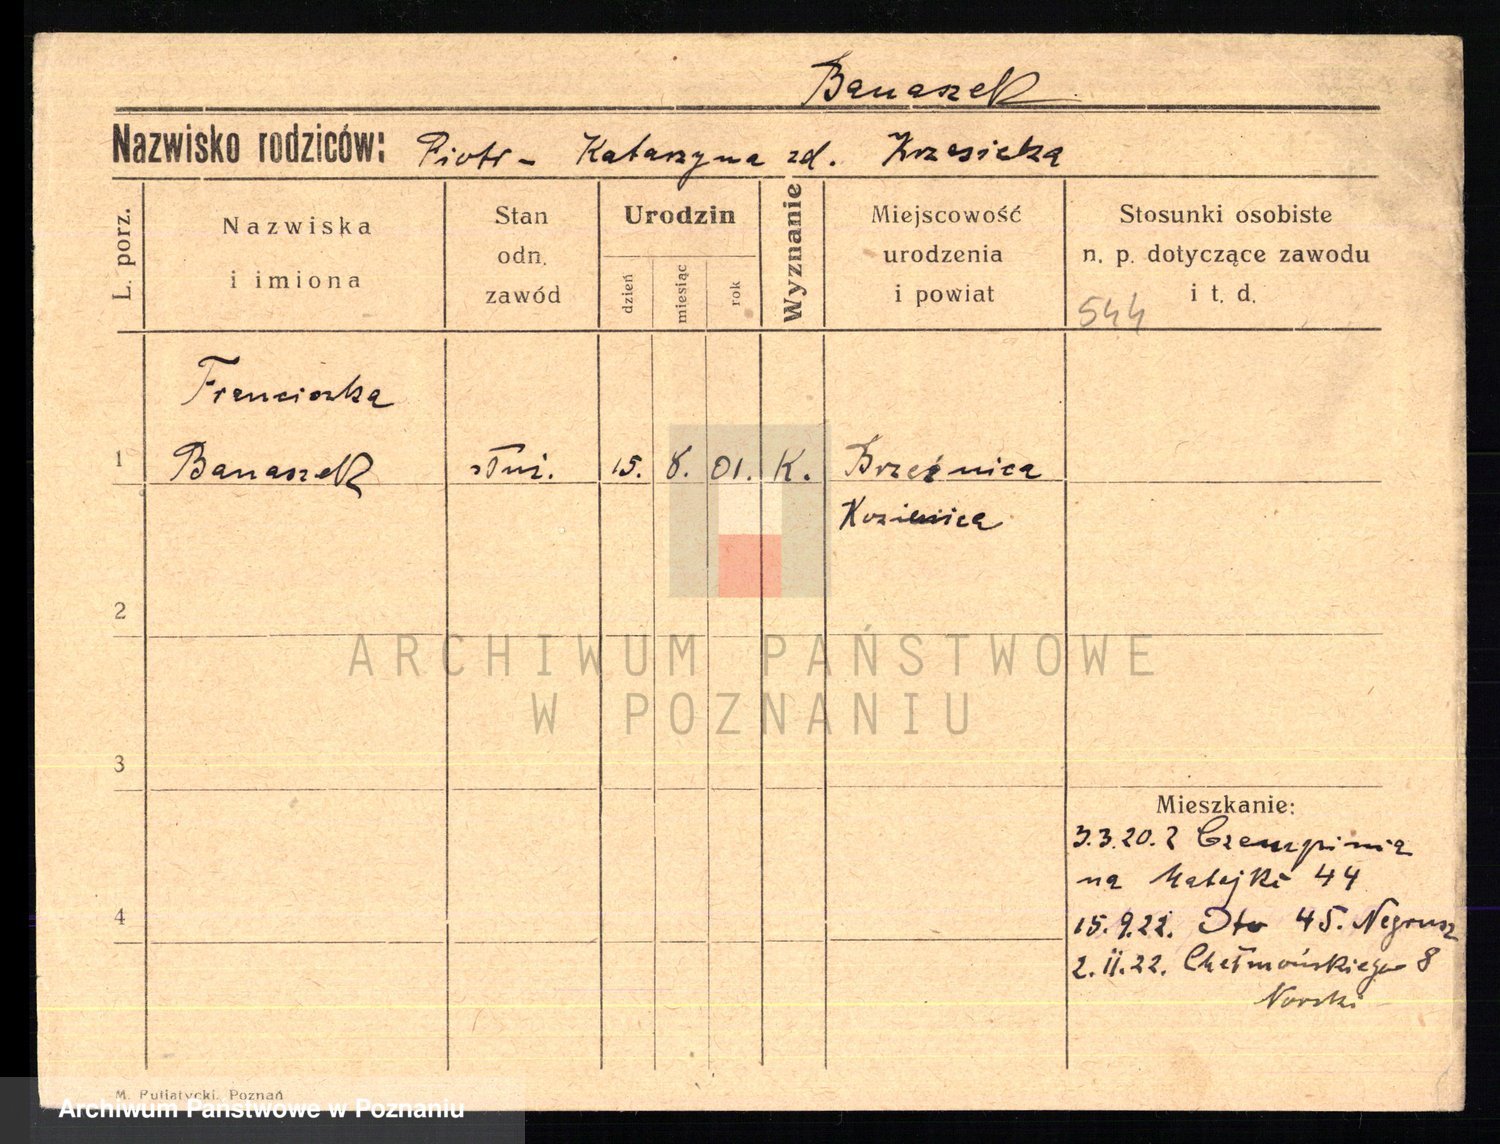 Banaszek
Nazwisko rodziców: Piotr - Katarzyna zd. Krzesicka
L. porz.
Nazwiska
i imiona
Stan
odn.
zawód
Urodzin
dzień
miesiąc
rok
Wyznanie
Miejscowość
urodzenia
i powiat
Stosunki osobiste
n. p. dotyczące zawodu
i t. d.
544
Franciszka
1 Banaszek służ. 15. 8. 01. K. Brzeźnica
Kozienica
2
ARCHIWUM PAŃSTWOWE
W POZNANIU
3
Mieszkanie:
3.3.20. z Czempinia
na Matejki 44
4
15.9.22. 45. Negrusz
2.11.22. Chełmońskiego 8
Norski
M. Putiatycki, Poznań
Archiwum Państwowe w Poznaniu